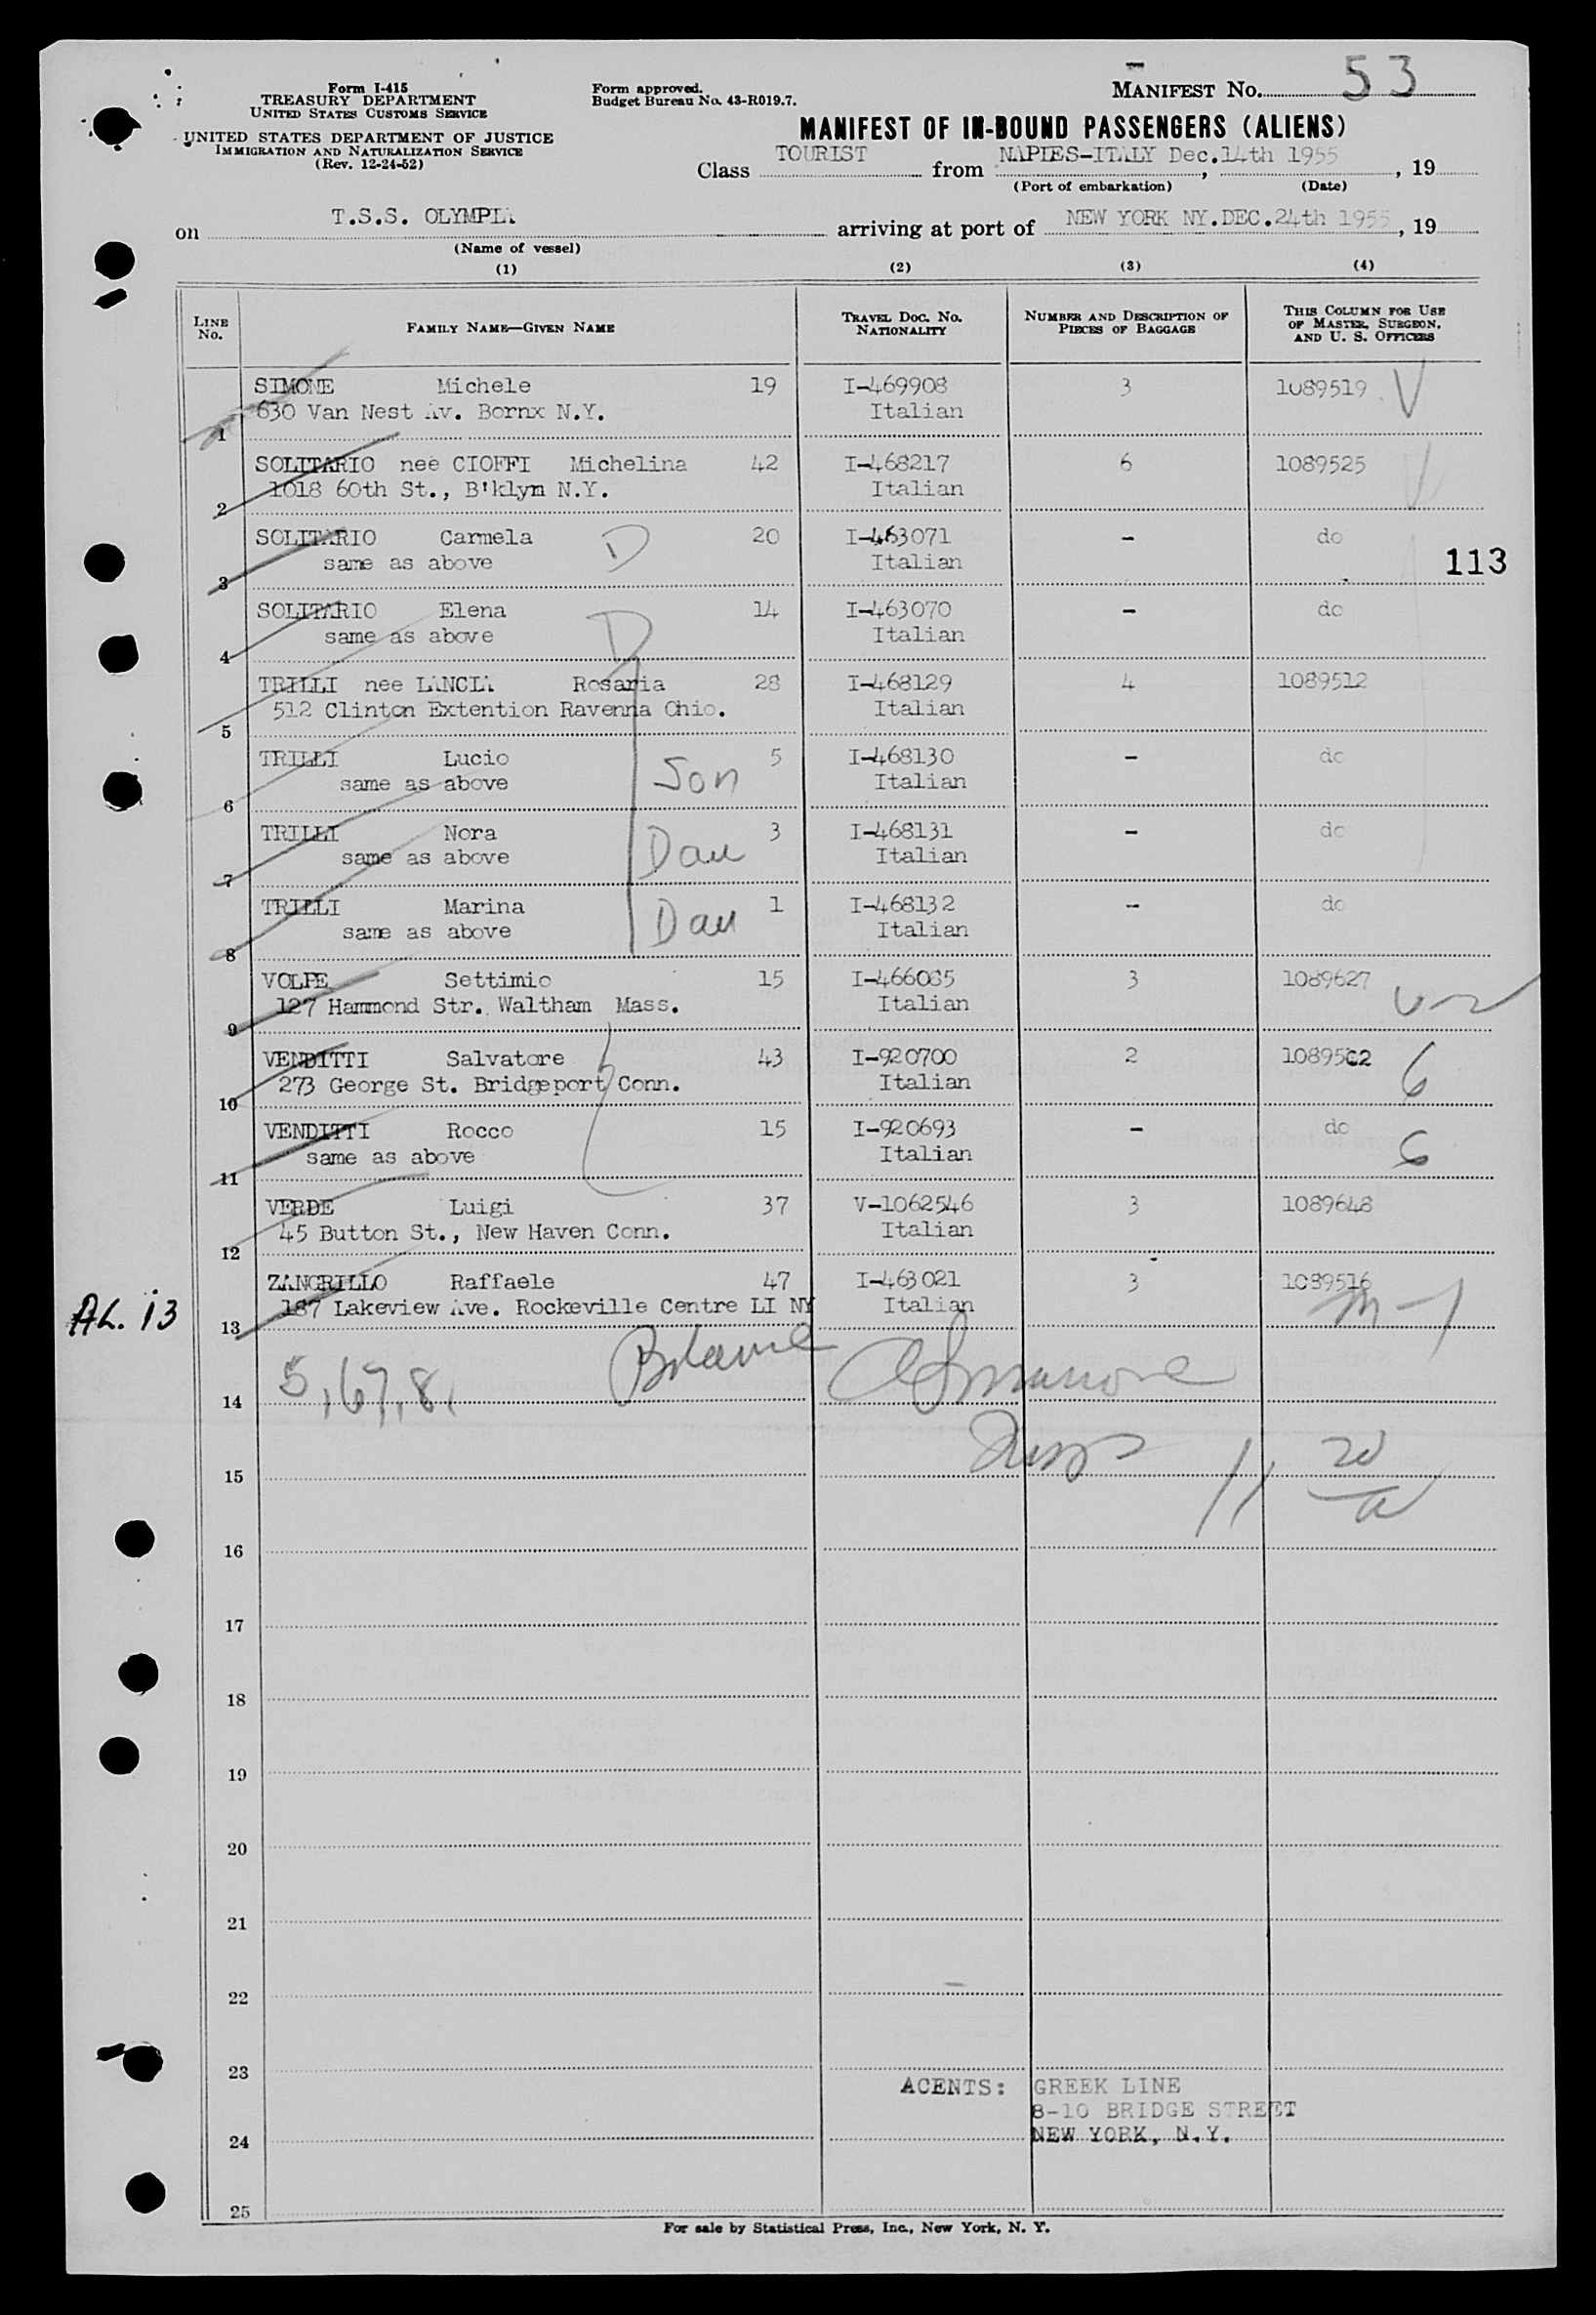 Form I-415
TREASURY DEPARTMENT
UNITED STATES CUSTOMS SERVICE
UNITED STATES DEPARTMENT OF JUSTICE
IMMIGRATION AND NATURALIZATION SERVICE
(Rev. 12-24-52)
Form approved.
Budget Bureau No. 43-R019.7.
MANIFEST No. 53
MANIFEST OF IN-BOUND PASSENGERS (ALIENS)
Class TOURIST from NAPLES-ITALY Dec.14th 1955, 19
(Port of embarkation) (Date)
on T.S.S. OLYMPIA arriving at port of NEW YORK NY.DEC.24th 1955, 19
(Name of vessel)
(1) (2) (3) (4)
LINE No. FAMILY NAME—GIVEN NAME TRAVEL DOC. NO. NATIONALITY NUMBER AND DESCRIPTION OF PIECES OF BAGGAGE THIS COLUMN FOR USE OF MASTER, SURGEON, AND U. S. OFFICERS
SIMONE Michele 19 I-469908 3 1089519 V
1 630 Van Nest Av. Bornx N.Y. Italian
SOLITARIO nee CIOFFI Michelina 42 I-468217 6 1089525 V
2 1018 60th St., B'klym N.Y. Italian
SOLITARIO Carmela D 20 I-463071 - do
3 same as above Italian
113
SOLITARIO Elena D 14 I-463070 - do
4 same as above Italian
TRILLI nee LANCIA Rosaria 28 I-468129 4 1089512
5 512 Clinton Extention Ravenna Ohio. Italian
TRILLI Lucio 5 I-468130 - do
6 same as above Son Italian
TRILLI Nora 3 I-468131 - do
7 same as above Dau Italian
TRILLI Marina 1 I-468132 - do
8 same as above Dau Italian
VOLPE Settimio 15 I-466085 3 1089627
9 127 Hammond Str. Waltham Mass. Italian
VENDITTI Salvatore 43 I-920700 2 1089502 6
10 273 George St. Bridgeport Conn. Italian
VENDITTI Rocco 15 I-920693 - do 6
11 same as above Italian
VERDE Luigi 37 V-1062546 3 1089648
12 45 Button St., New Haven Conn. Italian
ZANGRILLO Raffaele 47 I-463021 3 1089516
AL. 13
13 187 Lakeview Ave. Rockeville Centre LI NY Italian
14 5,6,7,8,
15
16
17
18
19
20
21
22
23
AGENTS: GREEK LINE
8-10 BRIDGE STREET
24 NEW YORK, N.Y.
25
For sale by Statistical Press, Inc., New York, N. Y.